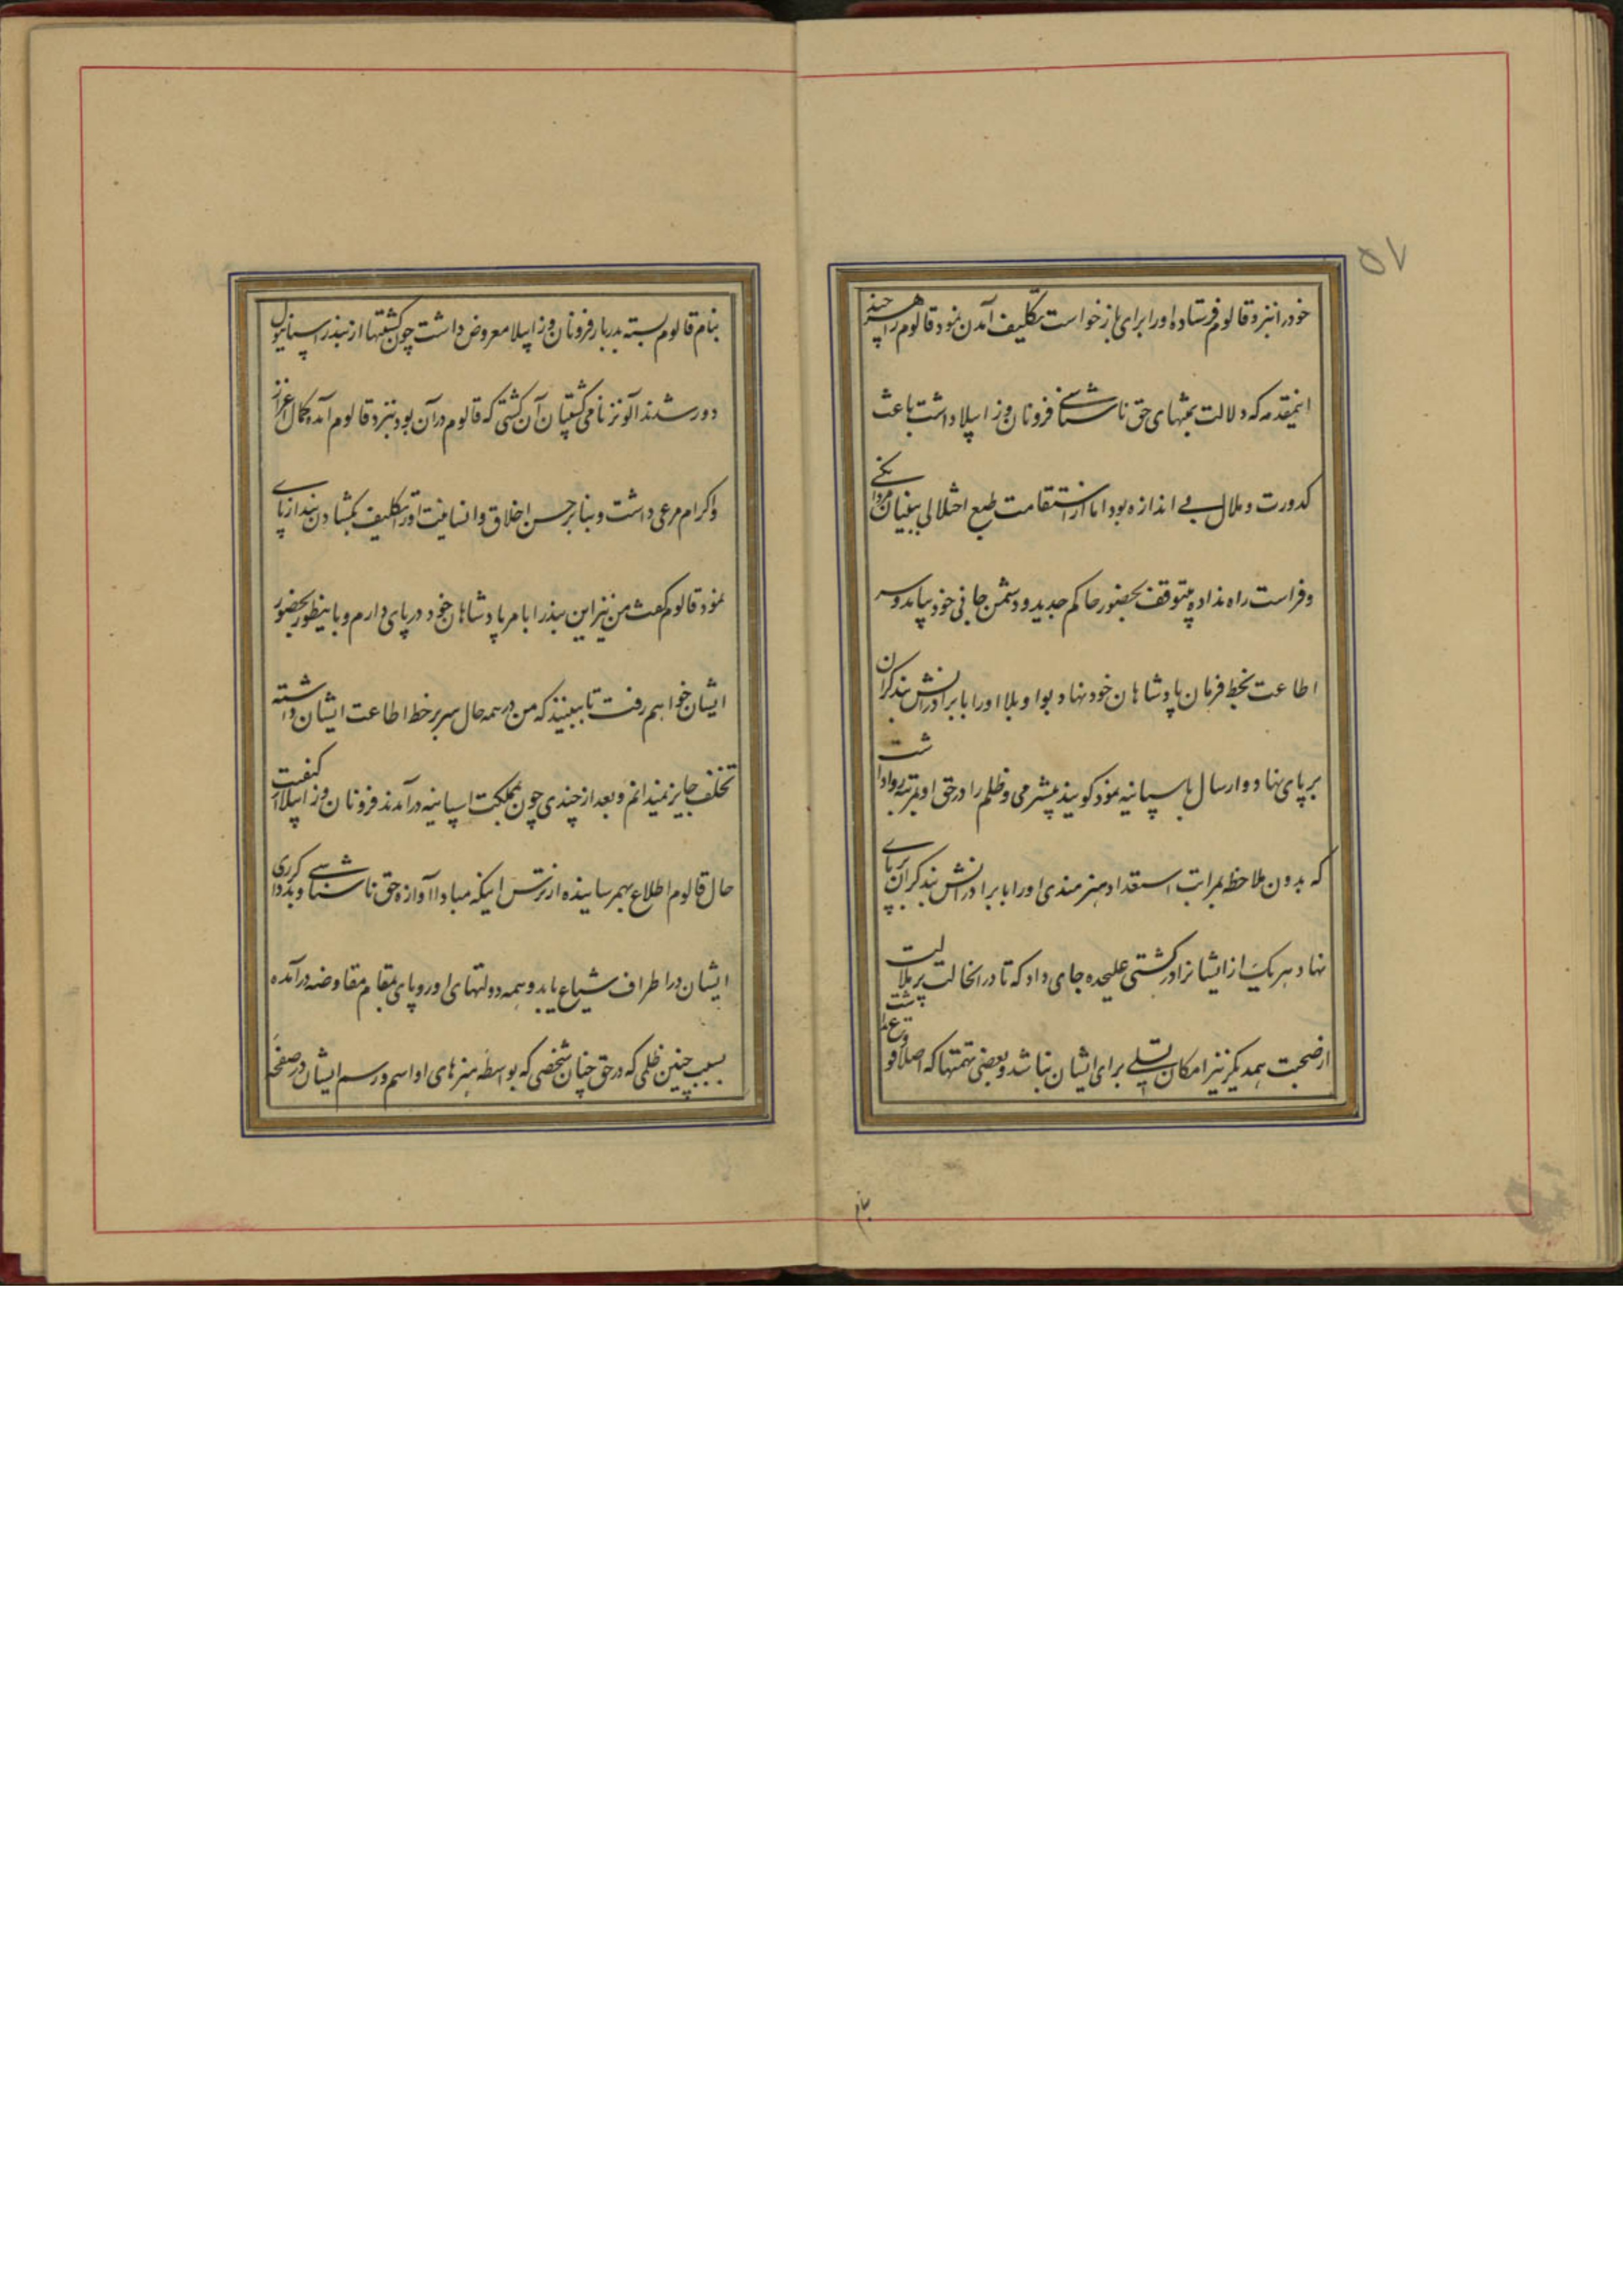 ۵۷
خود را نزد قالوم فرستاده او را برای باز خواست تکلیف آمدن نمود قالوم را هر چند
اینمقدمه که دلالت بمنتهای حق ناشناسی فرونان وز ابیلا داشت باعث
کدورت و ملال بی اندازه بود اما از استقامت طبع اختلالی ببنیان مردانکی
و فراست راه نداده بیتوقف بحضور حاکم جدید و دشمن جانی خود بیامد و سر
اطاعت بخط فرمان پادشاهان خود نهاد بواویلا او را با برادرانش بند کران
بر پای نهاد و ارسال باسپانیه نمود کویند بیشرمی و ظلم را در حق او بمرتبه روا داشت
که بدون ملاحظه مراتب استعداد و هنرمندی او را با برادرانش بند کران بر پای
نهاد هر یک از ایشانرا در کشتی علیحده جای داد که تا در انحالت پر ملالیت
از صحبت همدیکر نیز امکان تسلی برای ایشان نباشد و بعضی تهمتها که اصلا وقوع نداشت
بنام
بنام قالوم بسته بدربار فرونان وز ابیلا معروض داشت چون کشتیها از بندر اسپنایول
دور شدند آلونز نامی کشتیبان آن کشتی که قالوم در آن بود بنزد قالوم آمده کمال اعزاز
و اکرام مرعی داشت و بنا بر حسن اخلاق و انسانیت او را تکلیف بکشادن بند از پای
نمود قالوم کفت من نیز این بند را بامر پادشاهان خود در پای دارم و باینطور بحضور
ایشان خواهم رفت تا ببینند که من در همه حال سر بر خط اطاعت ایشان داشته
تخلف جایز نمیدانم و بعد از چندی چون بمملکت اسپانیه در آمدند فرونان وز ابیلا از کیفیت
حال قالوم اطلاع بهمرسانیده از ترس اینکه مبادا آوازه حق ناشناسی و بدکرداری
ایشان در اطراف شیاع یابد و همه دولتهای اوروپای بمقام مقاوضه درآمده
بسبب چنین ظلمی که در حق چنان شخصی که بواسطه هنرهای او اسم و رسم ایشان در صفحه